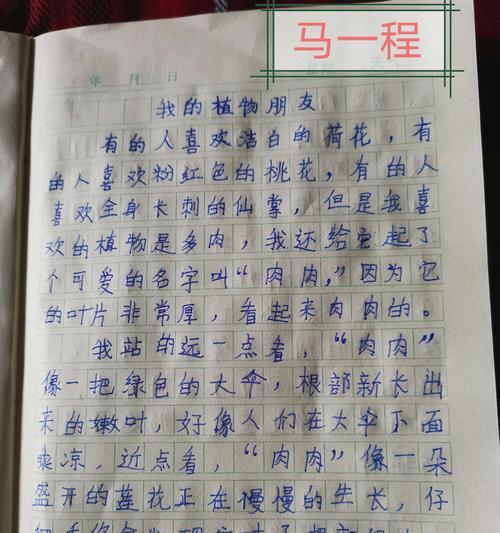 马一程
年 月 日 星期 天气
我的植物朋友
有的人喜欢洁白的荷花，有
的人喜欢粉红色的桃花，有的人
喜欢全身长刺的仙掌，但是我喜
欢的植物是多肉，我还给它起了
个可爱的名字叫“肉肉，”因为它
的叶片非常厚，看起来肉肉的。
我站的远一点看，“肉肉”
像一把绿色的大伞，根部新长出
来的嫩叶，好像人们在大伞下面
乘凉，近点看，“肉肉”像一朵
盛开的莲花正在慢慢的生长，仔